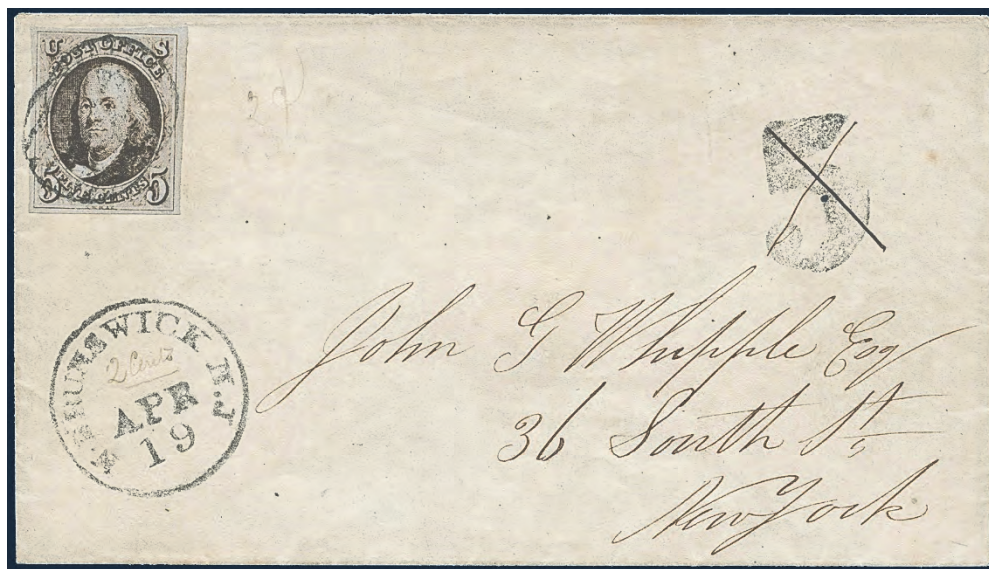 U S
POST OFFICE
FIVE CENTS
5 5
5
N. BRUNSWICK N.J
2 Cents
APR
19
John G Whipple Esq
36 South St
New York